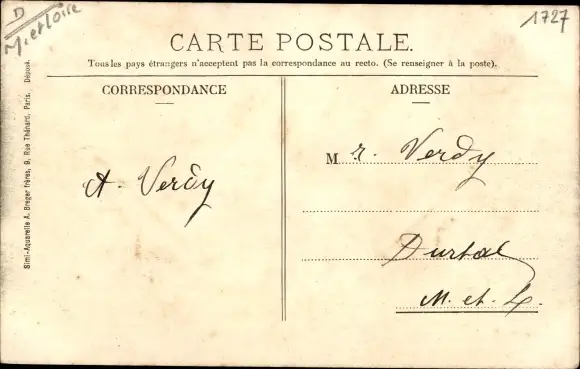 D
M. et Loire
1727
CARTE POSTALE.
Tous les pays étrangers n'acceptent pas la correspondance au recto. (Se renseigner à la poste).
CORRESPONDANCE
ADRESSE
Simi-Aquarelle A. Breger frères, 9, Rue Thénard, Paris. Déposé.
A. Verdy
M r. Verdy
Durtal
M. et L.